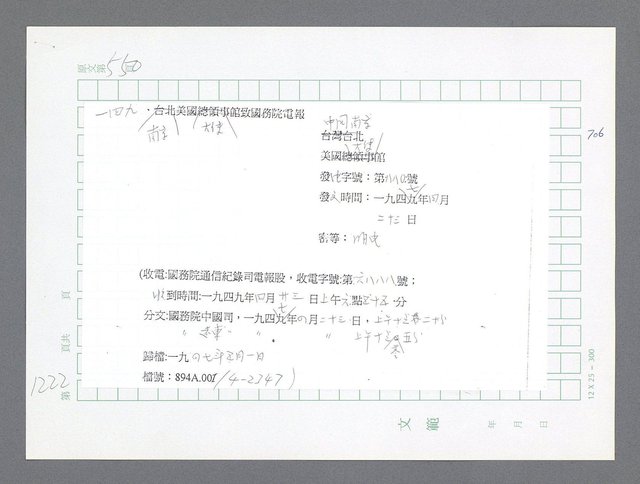 原文第550頁
一四九、台北美國總領事館致國務院電報
南京 大使
中国南京
台灣台北
大使
美國總領事館
706
發电字號：第八八〇號
七
發文時間：一九四九年四月
二十三日
密等：明电
(收電:國務院通信紀錄司電報股，收電字號:第六八八八號；
收到時間:一九四九年四月廿三日上午六點五十五分
七
分文:國務院中國司，一九四九年四月二十三日，上午十
〃 〃 〃 上午十
歸檔:一九四七年五月一日
檔號：894A.00/4-2347)
第1222頁共頁
12 X 25 - 300
文範
年 月 日